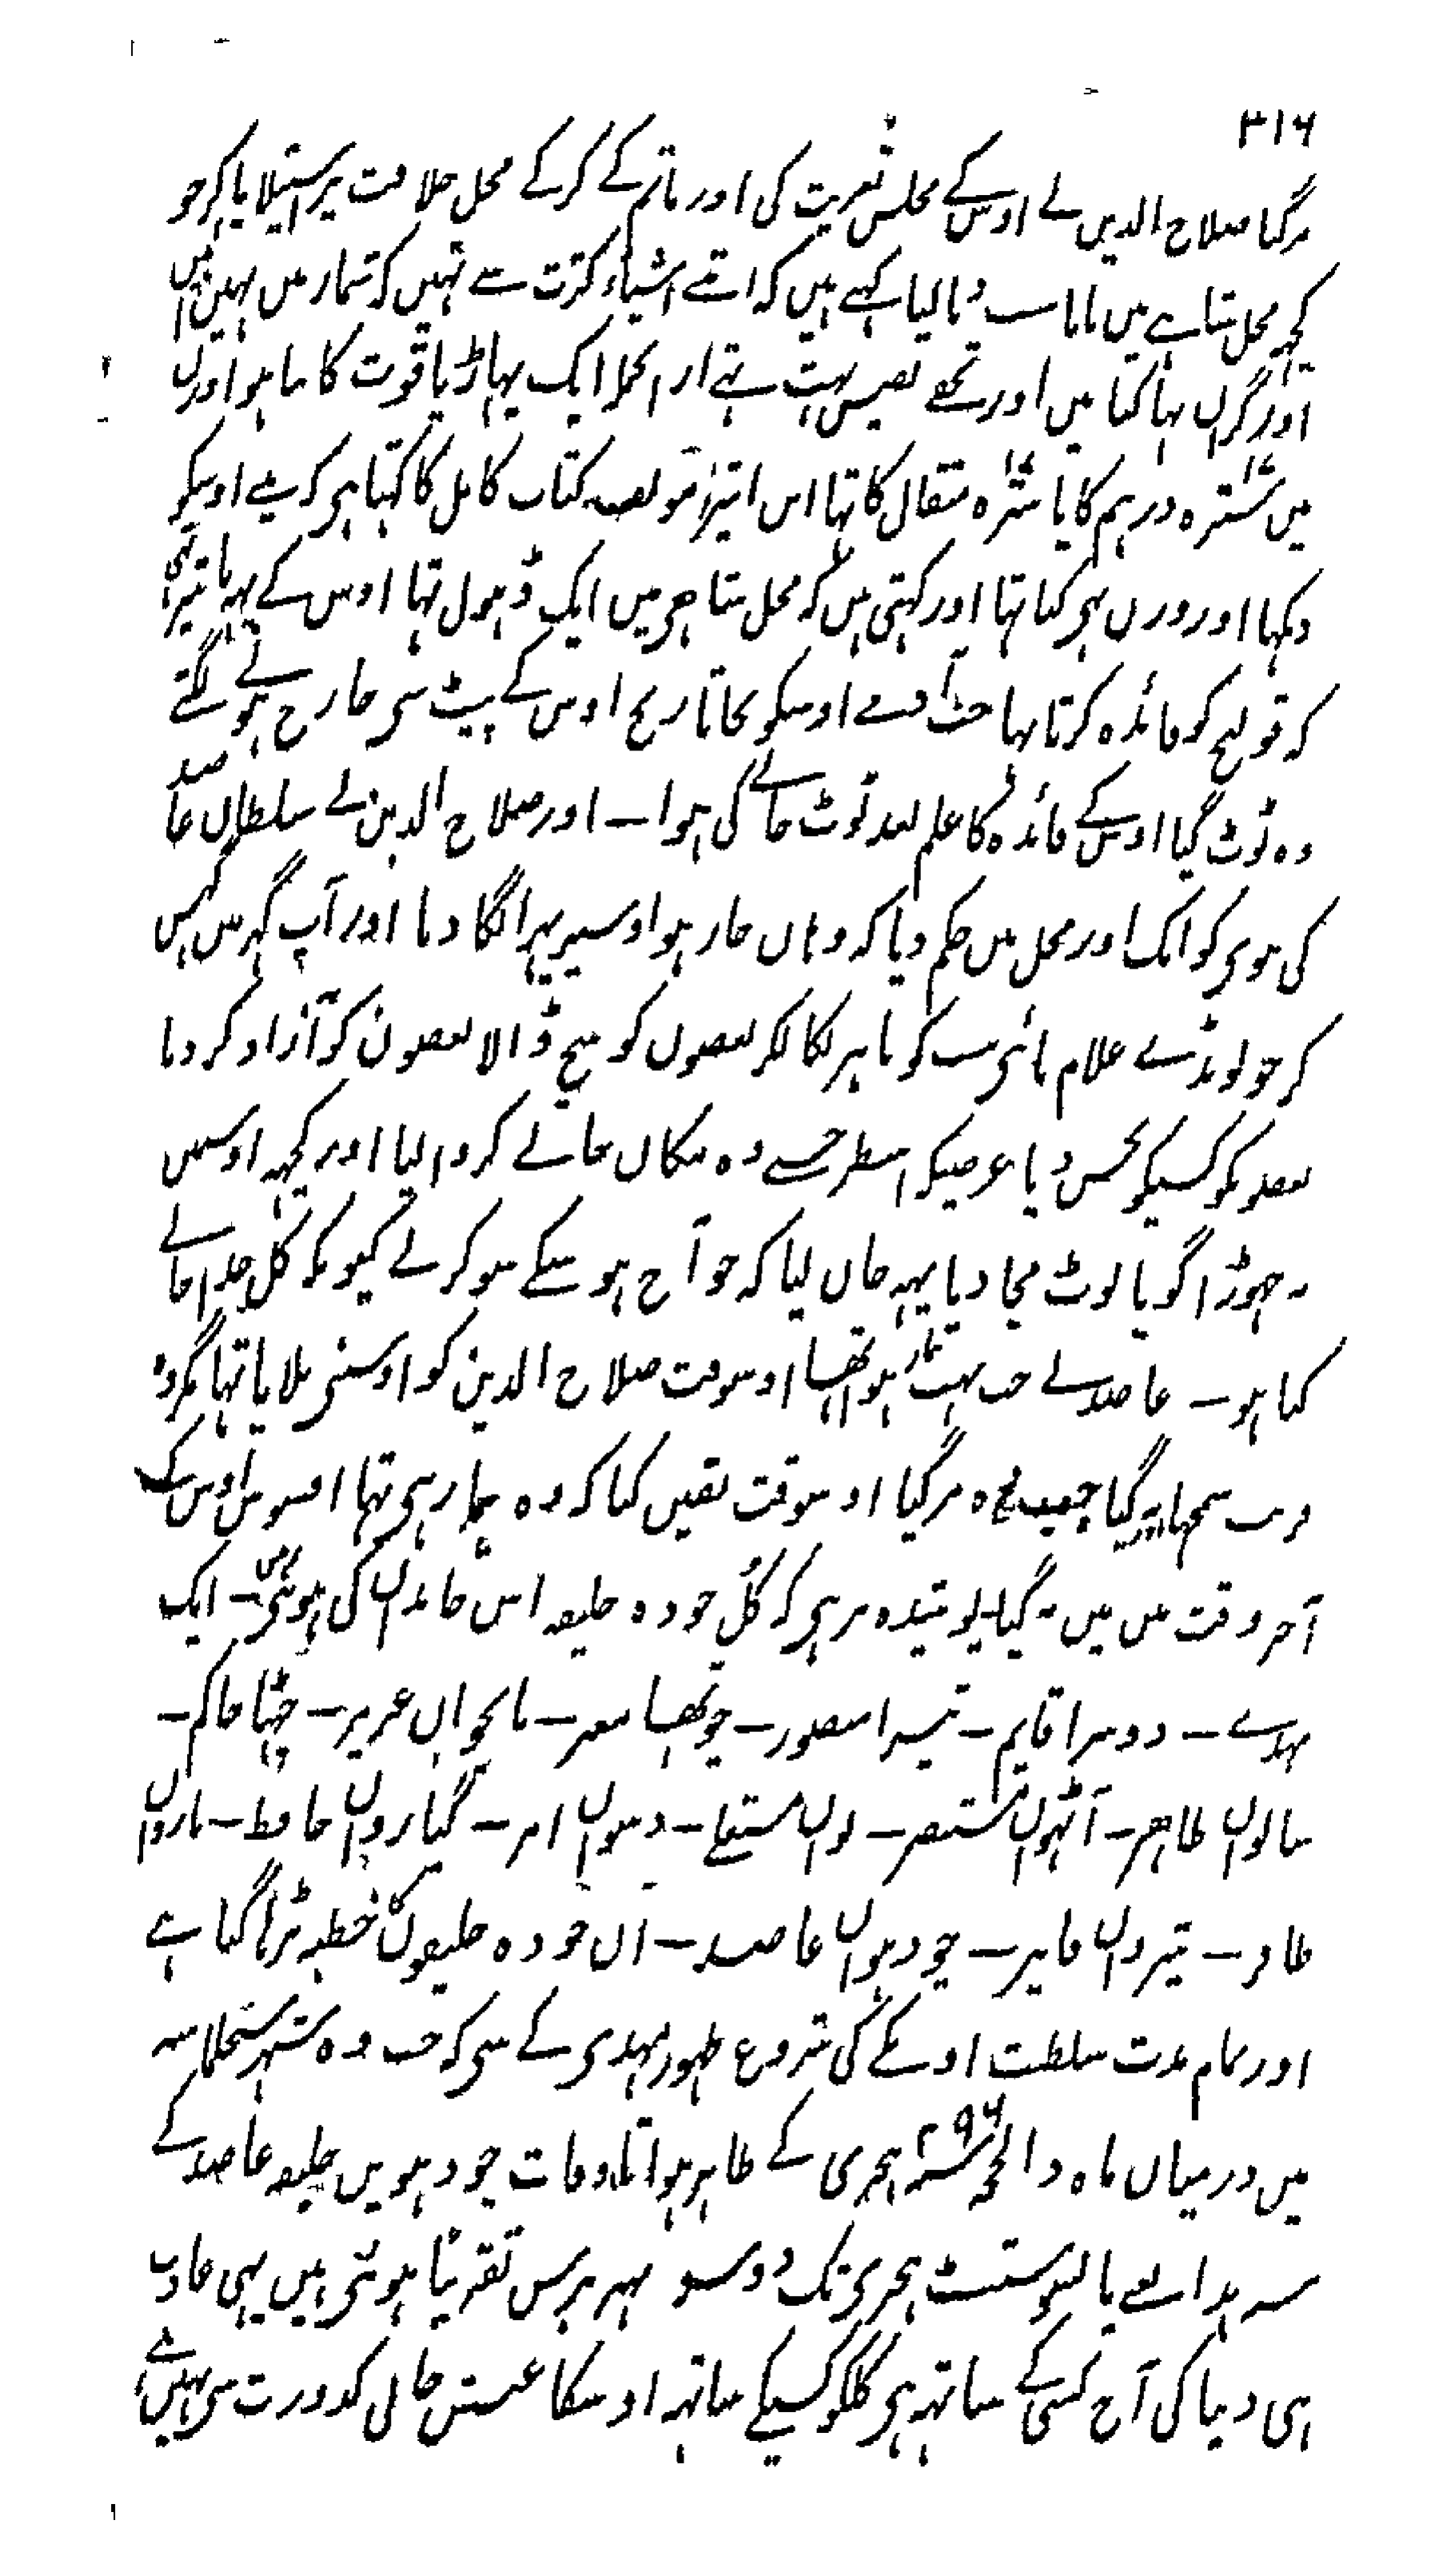 ۳۱۶
مرگیا صلاح الدین نے اوس کے مجلس تعزیت کی اور ماتم کے کرکے محل خلافت پر استیلا پاکر جو
کچھ محل شاہے میں اسباب دبا لیا کہے ہیں کہ اتنے اشیاء کثرت سے تہیں کہ شمار میں نہیں
اور گران بہا کتابیں اور تحفے نفیس بہت تہے از انجملہ ایک پہاڑ یاقوت کا ساہو اوزن
میں سترہ درہم کا یا سترہ مثقال کا تہا ابن اثیر مؤلف کتاب کامل کا کہتا ہی کہ مینے اوسکو
دیکہا اور وزن بہی کیا تہا اور کہتی ہیں کہ محل شاہی میں ایک ڈہول تہا اوس کے یہہ تاثیر تہی
کہ قولنج کو فائدہ کرتا تہا جب آدمے اوسکو بجاتا ریح اوس کے پیٹ سی خارج ہونے لگتے
وہ ٹوٹ گیا اوس کے فائدہ کا علم بعد ٹوٹ جانے کی ہوا – اور صلاح الدین نے سلطان عاضد
کی بیوی کو ایک اور محل میں حکم دیا کہ وہاں جا رہو اوسپر پہرا لگا دیا اور آپ گہر میں گہس
کر جو لونڈے غلام پائی سب کو باہر نکالکر بعضوں کو بیچ ڈالا بعضون کو آزاد کر دیا
بعضونکو کسیکو بخش دیا غرضیکہ اسطرحسے وہ مکان خالے کروا لیا اور کچہہ اوسمیں
نہ چہوڑا گویا لوٹ مچا دیا یہہ جان لیا کہ جو آج ہو سکے سو کرلے کیونکہ کل خدا جانے
کیا ہو – عاضد نے جب بہت بیمار ہوا تھا اوسوقت صلاح الدین کو اوسنی بلایا تہا مگر وہ
فریب سمجہا نہ گیا جب وہ مرگیا اوسوقت یقین کیا کہ وہ بیمار ہی تہا افسوس اوس کے
آخر وقت میں میں نہ گیا پوشیدہ نرہی کہ کل چودہ خلیفہ اس خاندان کی ہوئی ہیں – ایک
مہدے – دوسرا قایم – تیسرا منصور – چوتھا معز – پانچواں عزیز – چہٹا حاکم –
ساتواں ظاہر – آٹہواں مستنصر – نواں مستعلے – دسواں امر – گیارواں حافظ – بارواں
ظافر – تیرواں فایز – چودہواں عاضد – ان چودہ خلیفوں کا خطبہ پڑہا گیا ہے
اور تمام مدت سلطنت اونکے کی شروع ظہور مہدی کے سی کہ جب وہ شہر سجلماسہ
میں درمیان ماہ ذالحجہ سنہ ۲۹۶ ہجری کے ظاہر ہوا تا وفات چودہویں خلیفہ عاضد کے
سنہ ہذا یعنے پانسو سٹسٹ ہجری تک دو سو بہتر برس تقریباً ہوئی ہیں یہی عادت
ہی دنیا کی آج کسی کے ساتہہ ہی کلکو کسیکے ساتہہ اوسکا عیش خالی کدورت سی نہیں ہے